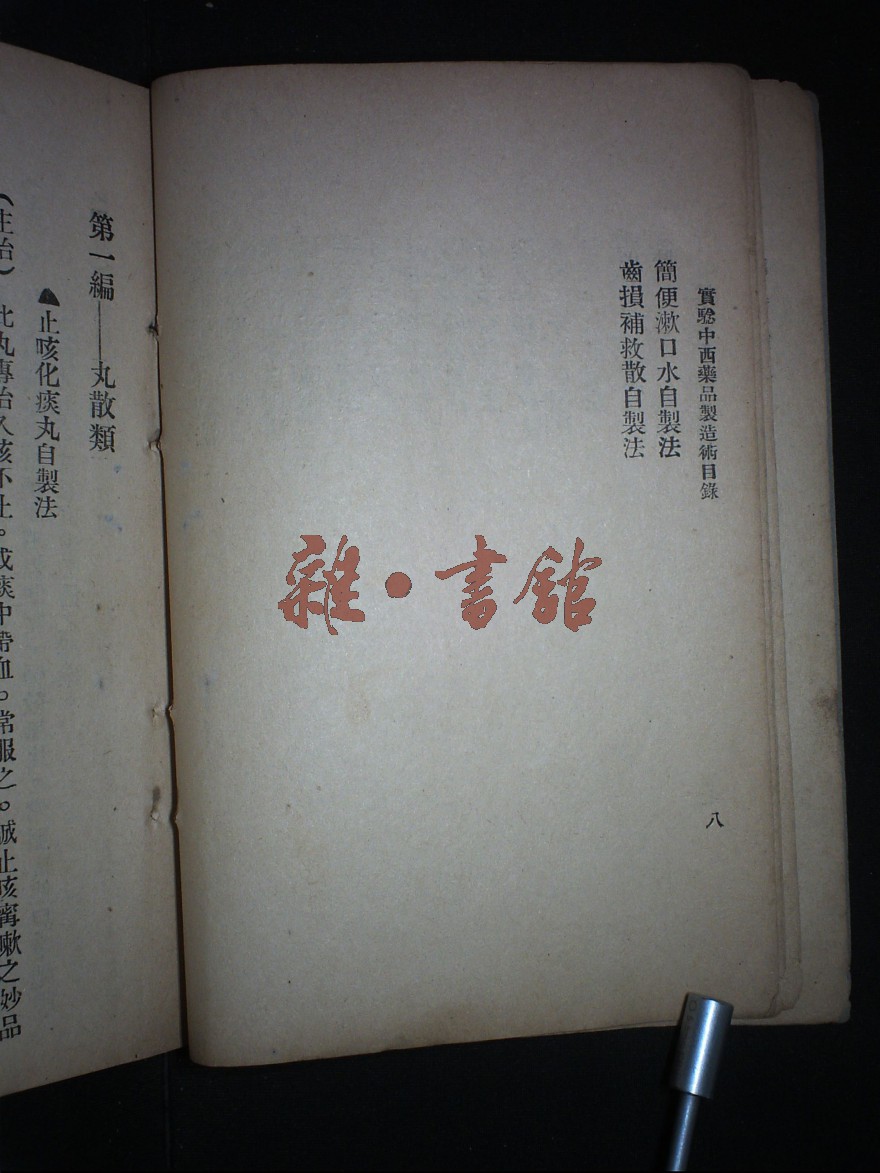 實驗中西藥品製造術目錄
簡便漱口水自製法
齒損補救散自製法
八
雜·書館
第一編——丸散類
▲止咳化痰丸自製法
(主治) 此丸專治久咳不止。或痰中帶血。常服之。誠止咳寧嗽之妙品